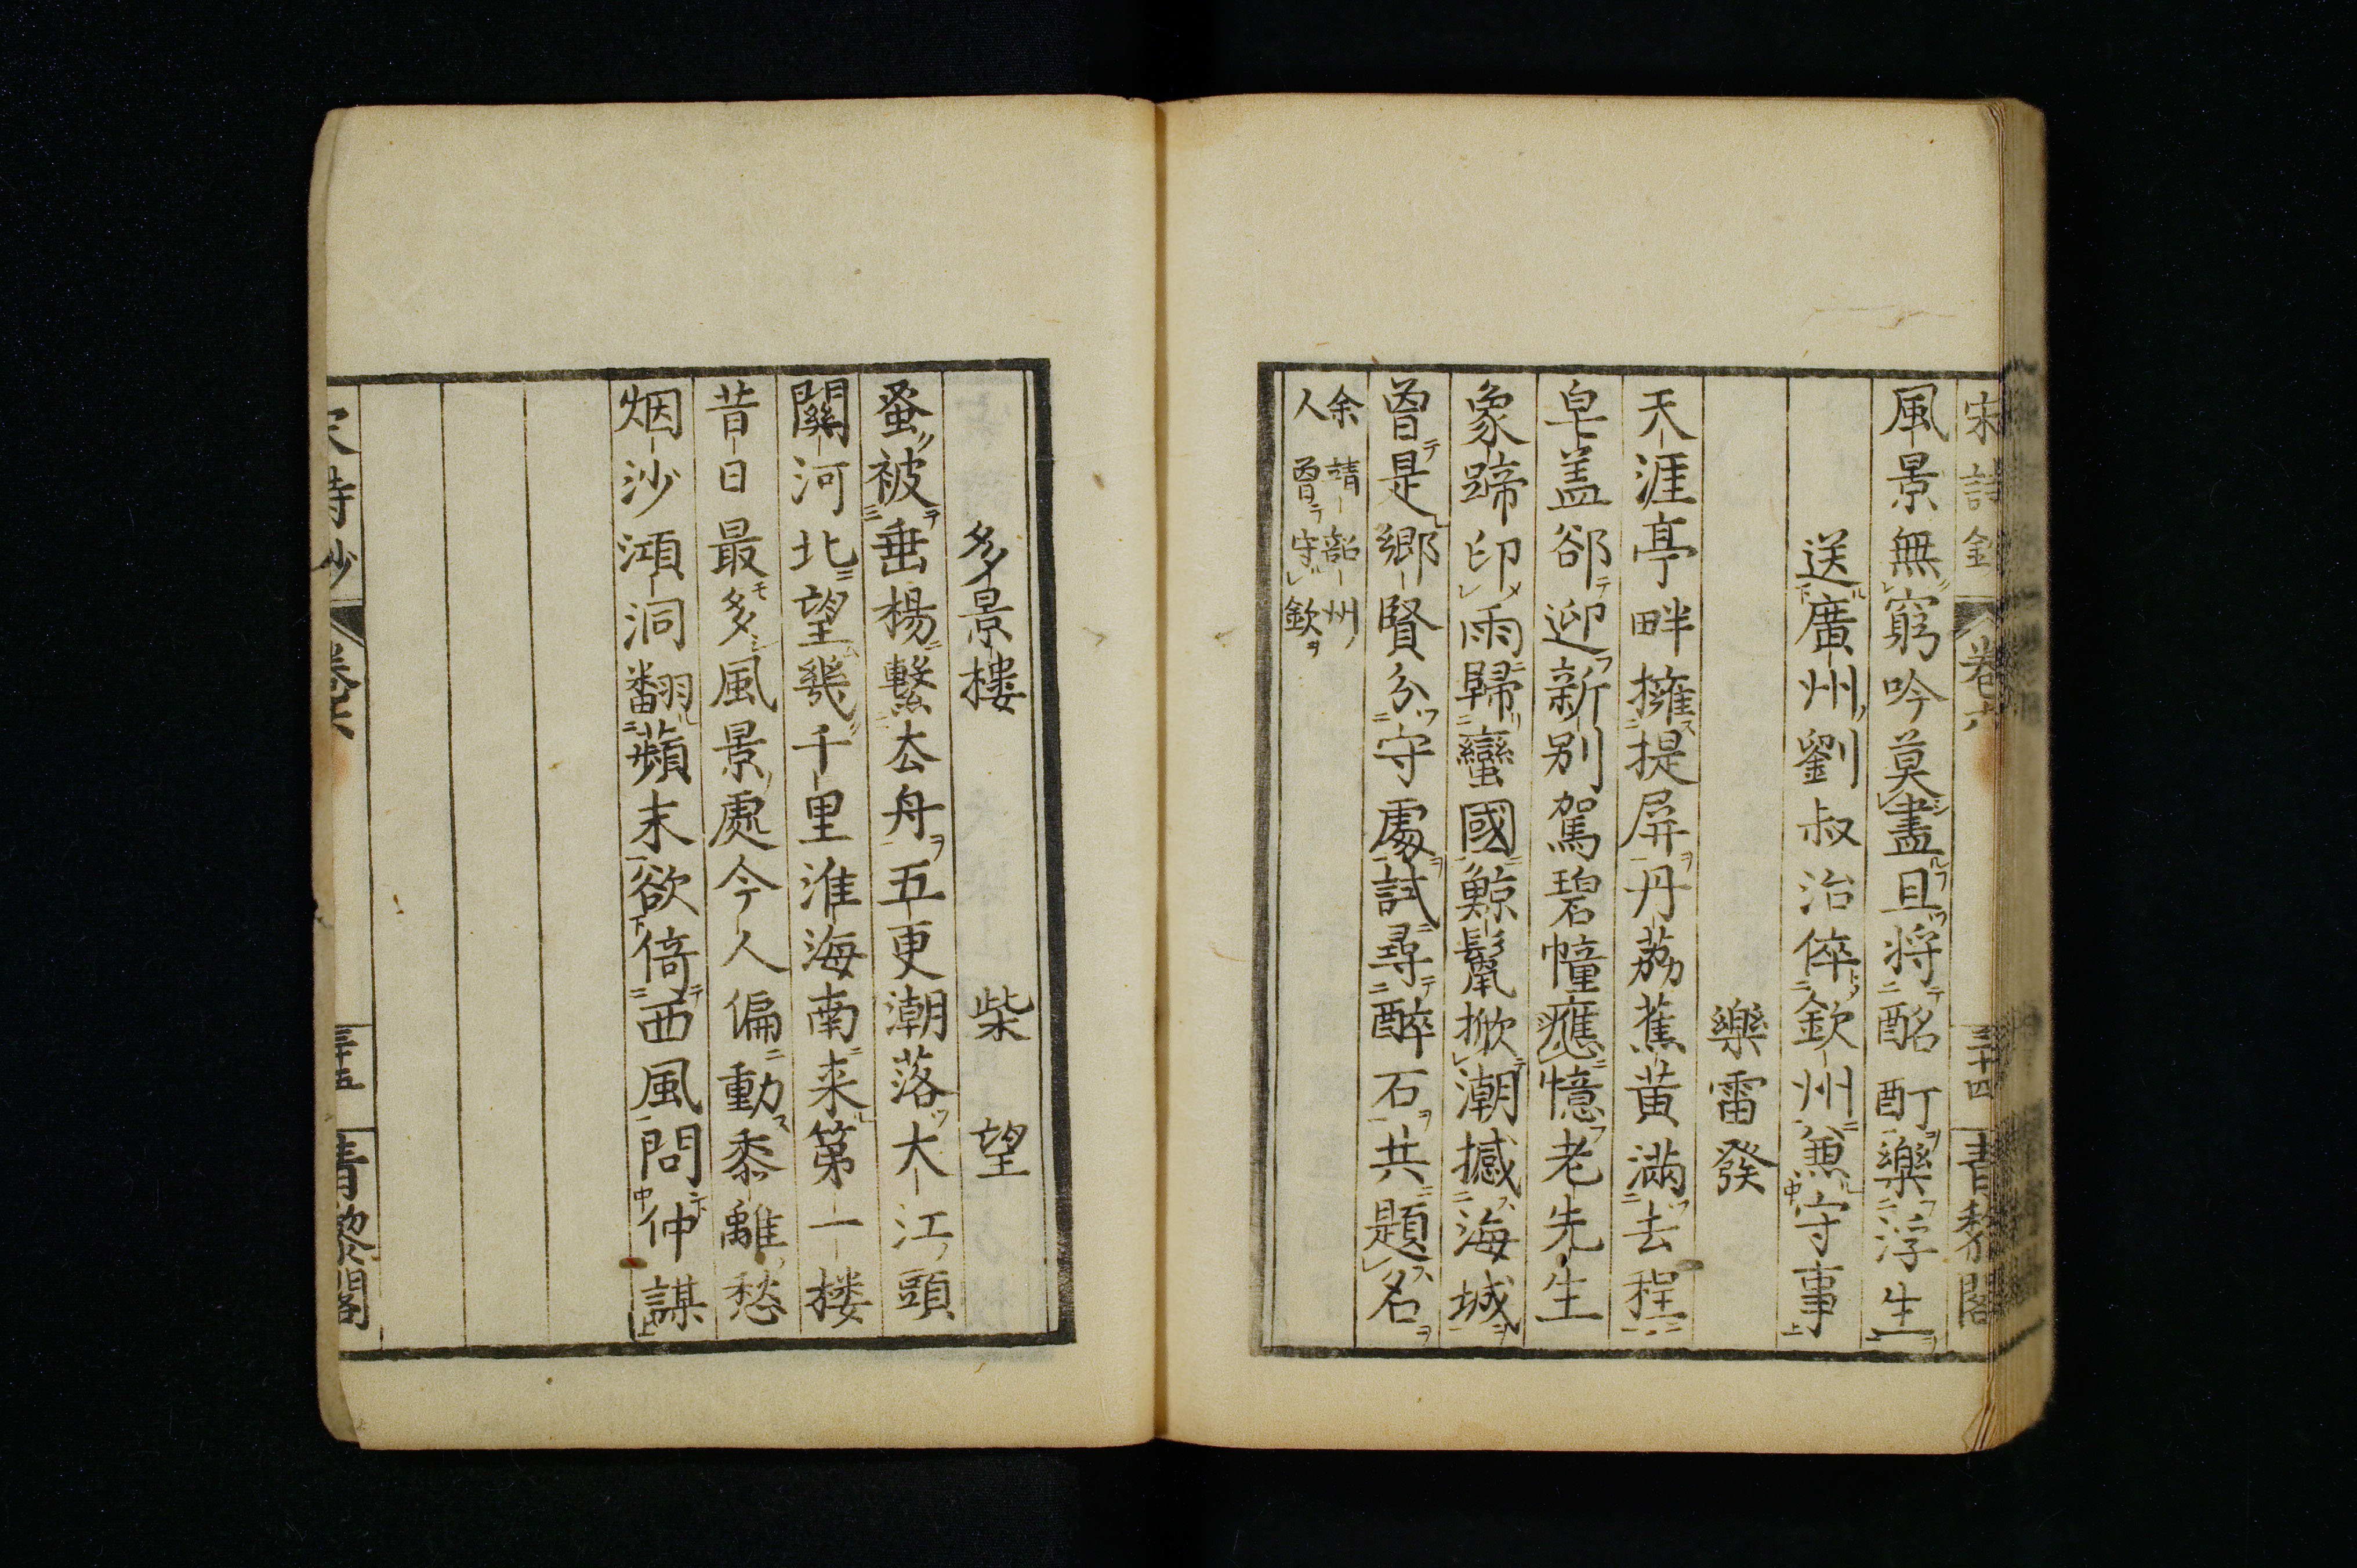 宋詩鈔 卷六 三十四 青藜閣
風景無窮吟莫盡且將酩酊樂浮生
送廣州劉叔治倅欽州兼守事
樂雷發
天涯亭畔擁提屏丹荔蕉黃滿去程
皁盖郤迎新别駕碧幢應憶老先生
象蹄印雨歸蠻國鯨鬣掀潮撼海城
曾是鄉賢分守處試尋醉石共題名
余靖韶州
人曾守欽
多景樓 柴望
蚤被垂楊繫去舟五更潮落大江頭
關河北望幾千里淮海南来第一楼
昔日最多風景處今人偏動黍離愁
烟沙澒洞翻蘋末欲倚西風問仲謀
宋詩鈔 卷六 三十五 青藜閣